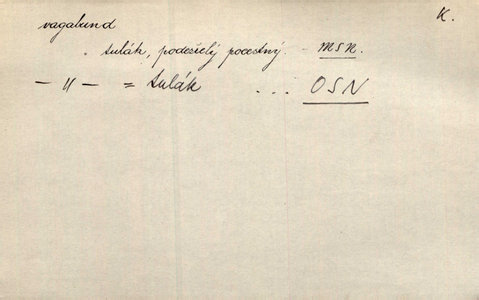 K.
vagabund
. tulák, podešelý pocestný. – MSN.
– „ – = tulák ... OSN